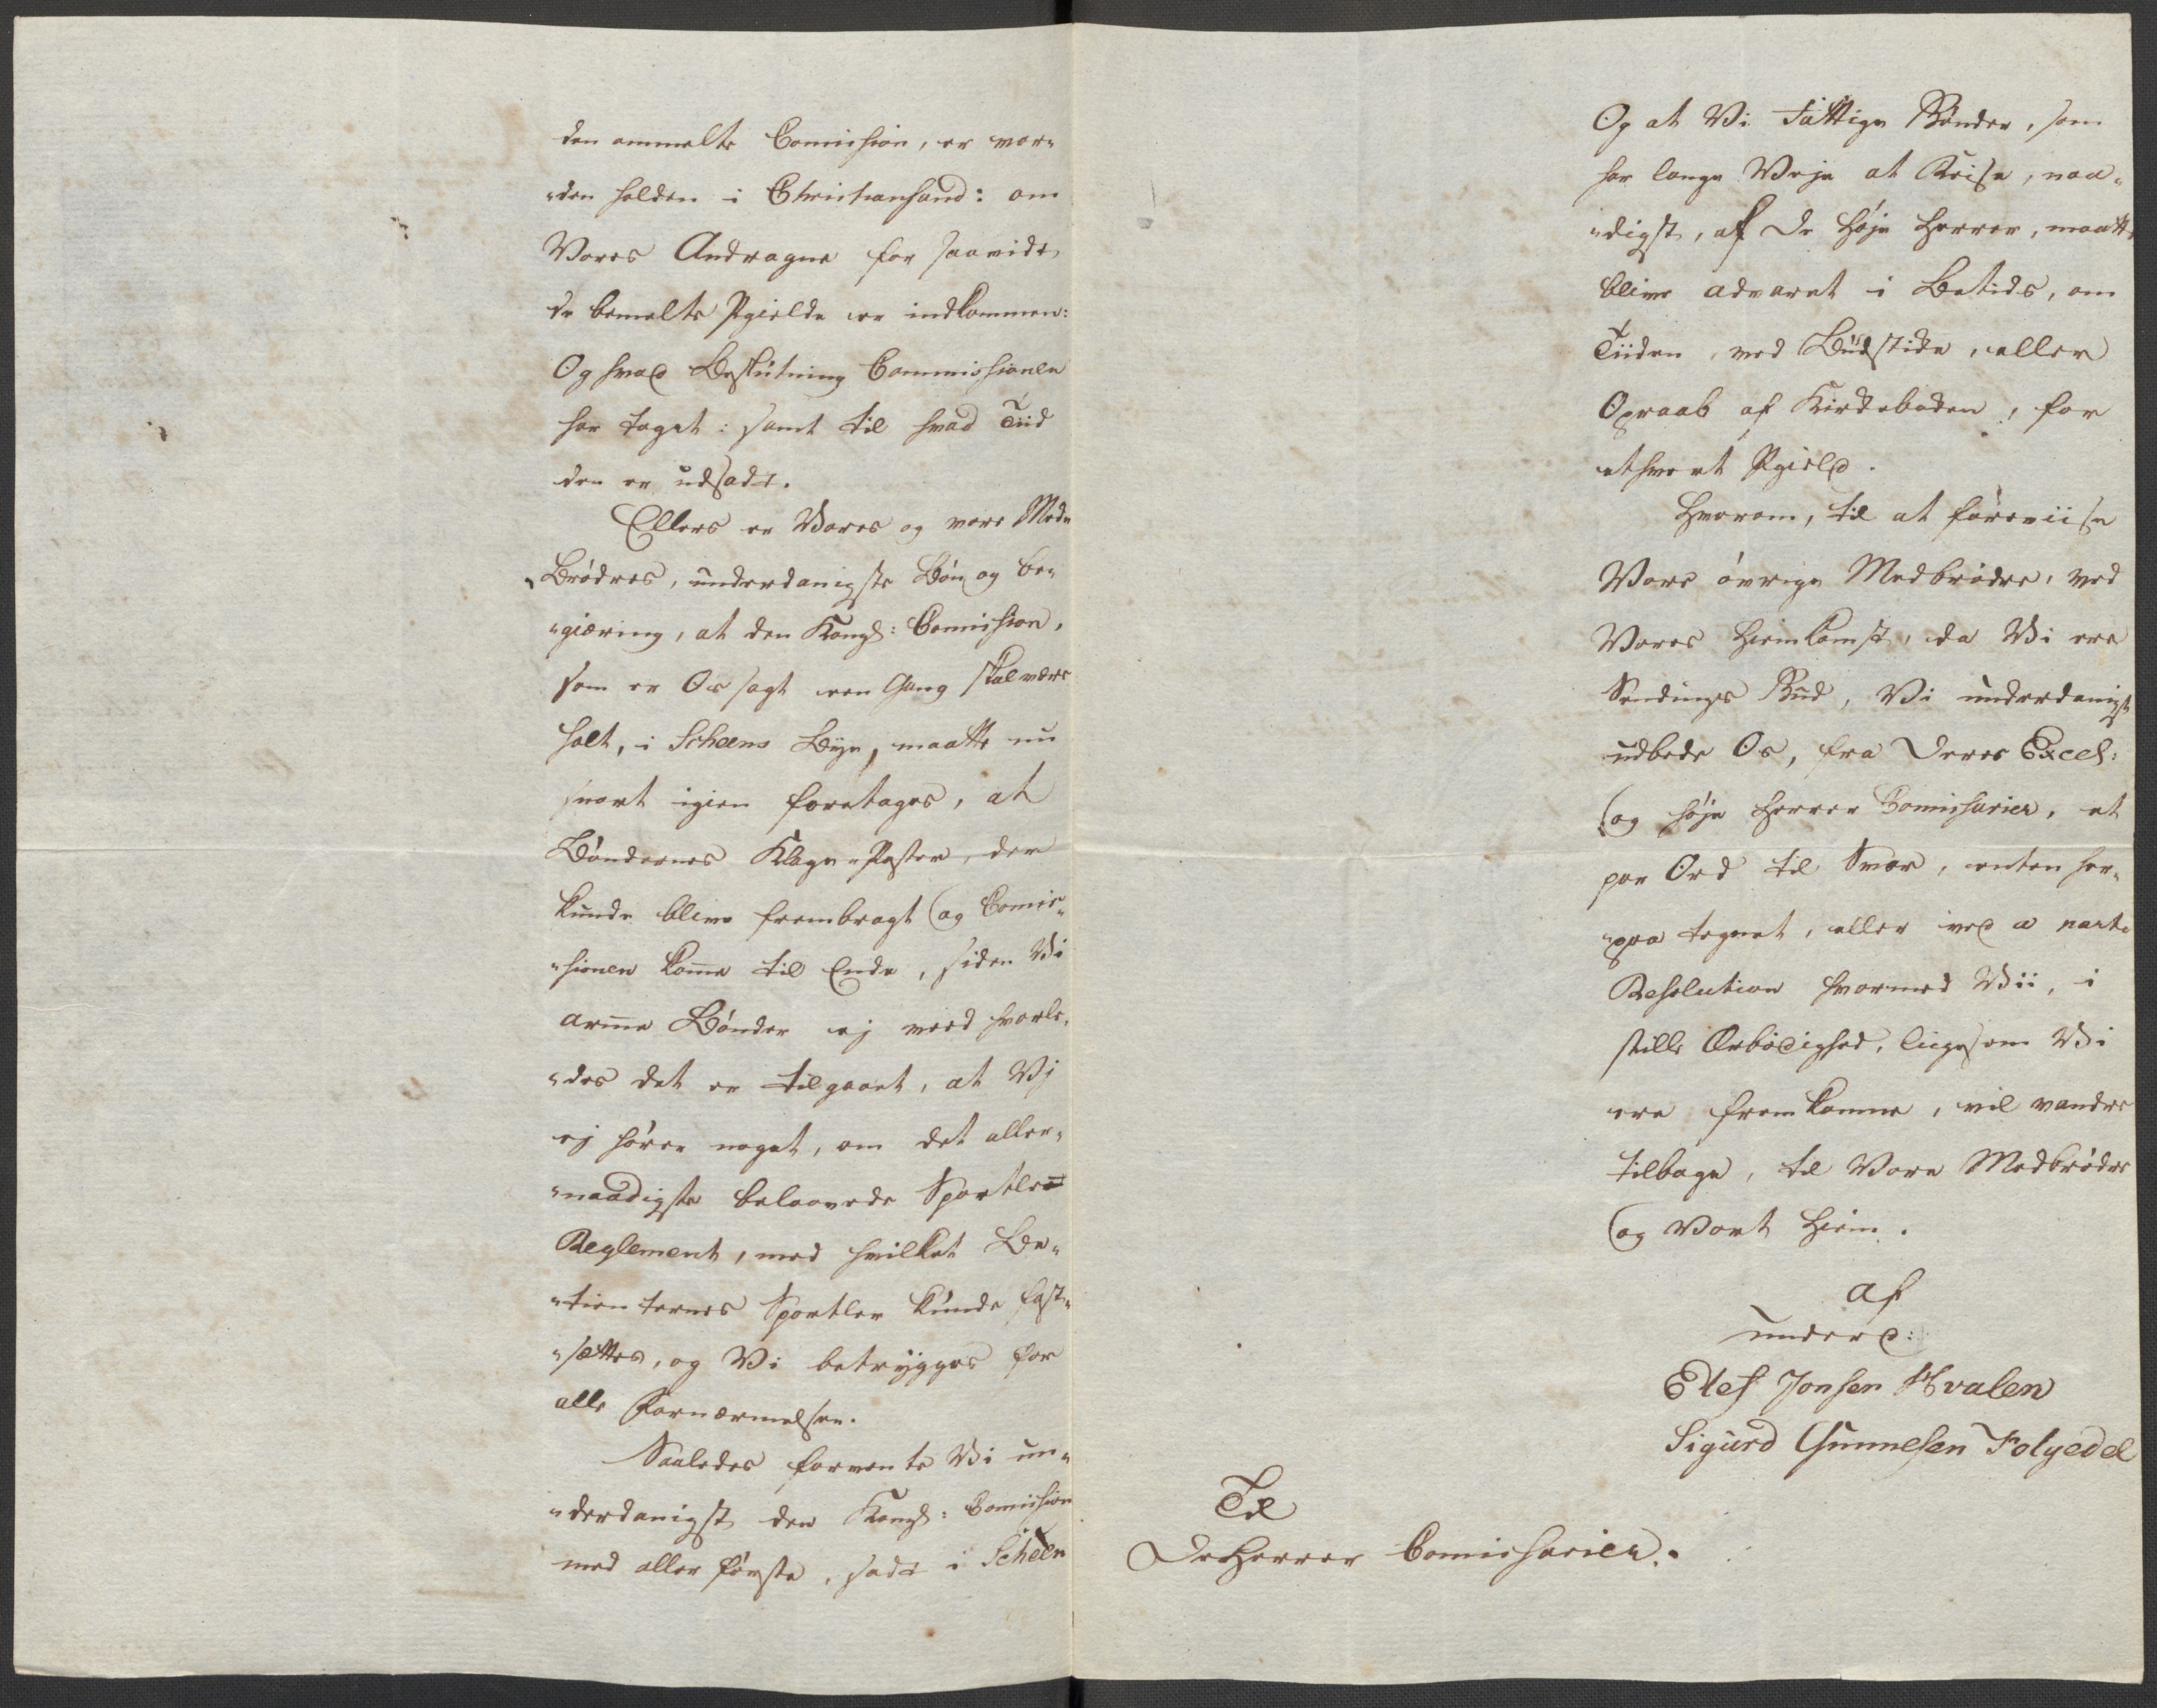 den ommelte Comission, er vor-
"den holden i Christiansand: om
Vores Andragne for saavidt
de bemelte Pgielde er indkommen:
Og hvad Beslutning Commissionen
har taget: samt til hvad Tiid
den er udsadt.
Ellers er Vores og vore Med
"Brödres, underdanigste Bön og be-
"giæring, at den Kongl: Comission,
som er Os sagt een Gang skal være
holt, i Scheens Bye, maatte nu
snart igien foretages, at
Böndernes Klage-Poster, der
kunde blive frembragt (og Comis-
"sionen kome til Ende, siden Vi
arme Bönder ej veed hvorle-
"des det er tilgaaet, at Vj
ej hörer noget, om det aller-
"naadigste belovede Sportler
Reglement, med hvilket Be-
"tienternes Sportler kunde fast-
"sættes, og Vi betrygges for
alle Fornærmelser.
Saaledes forvente Vi un-
"derdanigst den Kongl: Comission
med aller förste, sadt i Scheen
Og at Vi Fattige Bönder, som
har lange Veje at Reise, naa-
"digst, af De Höje Herrer, maatte
blive advaret i Betids, om
Tiiden, ved Budstikke, eller
Opraab af Kirkebakken, for
ethvert Pgield.
Hvorom, til at foreviise
Vore övrige Medbrödre, ved
Vores Hiemkomst, da Vi ere
Sendings Bud, Vi underdanigst
udbede Os, fra Deres Excel:
(og höje Herrer Comissarier, et
par Ord til Svar, enten her-
"paa tegnet, eller ved a parte
Resolution hvormed Vii, i
stille Ærbödighed, liigesom Vi
ere fremkomne, vil vandre
tilbage, til Vore Medbrödre
(og Vort Hiem.
af
underd:
Elef Jonsen Hvalen
Sigurd Gunnesen Folgedel
Til
De Herrer Comissarier.